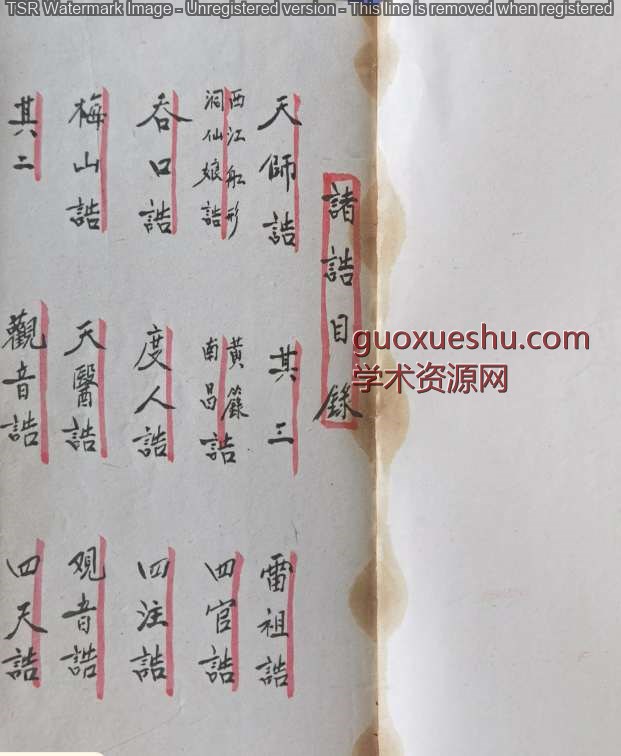 TSR Watermark Image - Unregistered version - This line is removed when registered
諸誥目錄
天師誥
其三
雷祖誥
西江船形
洞仙娘誥
黃籙
南昌誥
四官誥
吞口誥
度人誥
四注誥
梅山誥
天醫誥
观音誥
其二
觀音誥
四天誥
guoxueshu.com
学术资源网